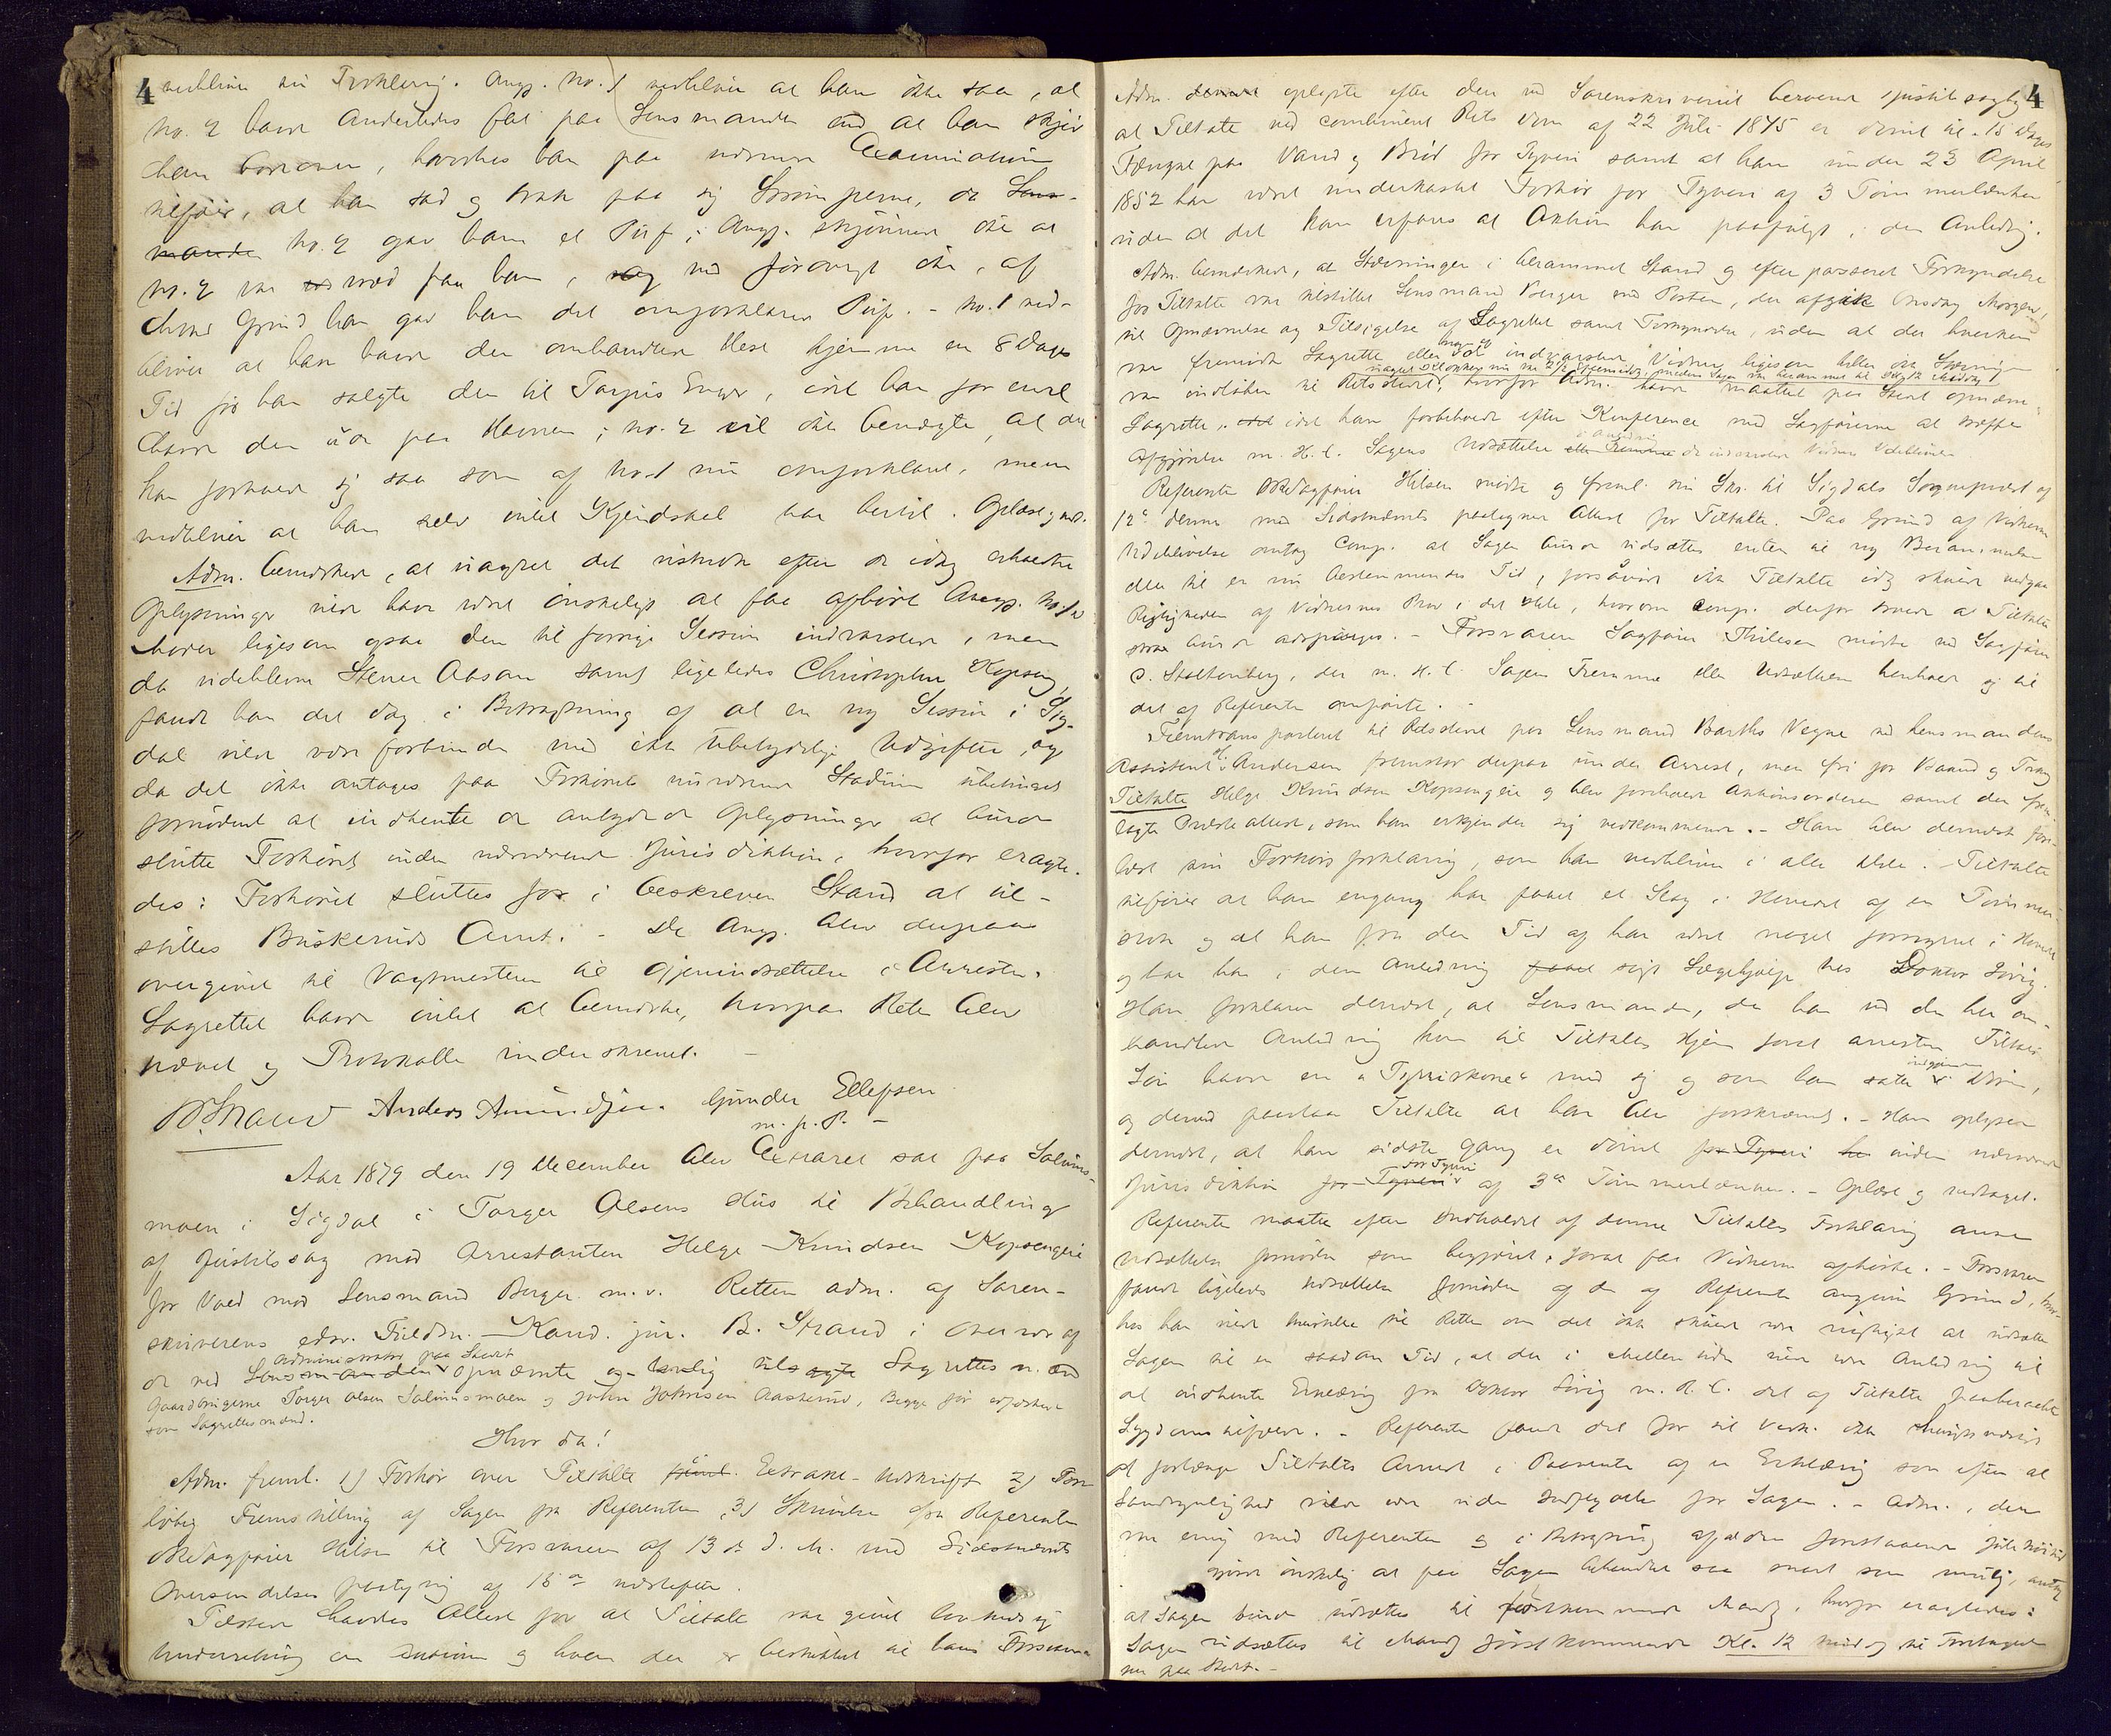 4
vedbliver sin Forklaring. Ang. No. 1 vedbliver at han ikke saa, at
No. 2 havde Anderledes fat paa Lensmanden end at han
ham, hvorhos han paa nærmere Examination
tilføier, at han sad og trak paa sig Strømperne, da Lens-
manden No. 2 gav ham et Puf; Ang. skjønnede ikke at
No. 2 var vred paa ham, og ved forøvrigt ikke, af
hvad Grund han gav ham det omforklarede Puf. - No. 1 ved-
bliver at han havde den omhandlede Hest hjemme en 8 Dages
Tid før han solgte den til Torgus Enger, idet han for enil
havde den ude paa Havnen; No. 2 vil ikke benægte, at
han forholdt sig saa som af No. 1 nu omforklaret, men
vedbliver at han selv intet Kjendskab har hertil. Oplæst og vedt.
Adm. bemærkede, at uagtet det vistnok efter de idag erholdte
Oplysninger vilde have været ønskeligt at faa afhørt Ang. No. 1s
Moder ligesom ogsaa den til forrige Session indvarslede, men
da udeblevne Stener Aasan samt ligeledes Christopher Kopseng,
fandt han det dog i Betragtning af at en ny Session i Sig-
dal vilde være forbunden med ikke ubetydelige Udgifter, og
da det ikke antages paa Forhørets nuværende Stadium ubetinget
fornødent at indhente de antydede Oplysninger at burde
slutte Forhøret inden nærværende Jurisdiktion, hvorfor eragte-
des: Forhøret sluttes for i beskreven Stand at til-
stilles Buskeruds Amt. - De Ang. blev derpaa
overgivet til Vagtmesteren til Gjenindsættelse i Arresten.
Lagrettet havde intet at bemærke, hvorpaa Retten blev
hævet og Protokollen underskrevet. -
B. Strand Anders Amundsen. Gunder Ellefsen
m. p. P. -
Aar 1879 den 19 December blev Extraret sat paa Solums-
moen i Sigdal i Torger Olsens Hus til Behandling
af Justitssag mod Arrestanten Helge Knudsen Kopsengeie
for Vold mod Lensmand Berger m. v. Retten adm. af Soren-
skriverens edsv. Fuldm. Kand. jur. B. Strand i Overvær af
Administrator paa Stedet
de ved Lensmanden opnævnte og lovlig tilsagte Lagrettes m. ænd
Gaardbrugerne Torger Olsen Solumsmoen og John Johnsen Aaslerud, Begge før edfæstede
som Lagrettesmænd.
Hvor da!
Adm. freml. 1) Forhør over Tiltalte freml. Extrakt-Udskrift 2) Fore
løbig Fremstilling af Sagen fra Referenten, 3) Skrivelse fra Referenten
Sagfører Hilsen til Forsvareren af 13 de d. M. med Sidstnævntes
Oversendelses paategning af 15 de næstefter.
Tilstede havdes Attest for at Tiltalte var givet lovkyndig
Underretning om Session og hvem der er beskikket til hans Forsvarer
4
Adm. oplyste efter den ved Sorenskriveriet beroende Justitssag
at Tiltalte ved combineret Rets Dom af 22 Juli 1875 er dømt til 15 Dages
Fængsel paa Vand og Brød for Tyveri samt at han under 23 April
1852 har været underkastet Forhør for Tyveri af 3 Tømmerlænker
uden at det kan erfares at Aktion har paafulgt i den Anledning.
Adm. bemærkede, at Stævningen i berammet Stand og efter passeret Forkyndelse
for Tiltalte var tilstillet Lensmand Berger med Posten, der afgik Onsdag Morgen,
til Opnævnelse og Tilsigelse af Lagrettet samt Forkyndelse, uden at der hverken
var fremmødt Lagrette eller indvarslede Vidner, ligesom heller ikke Stævningen
var indløben til Retsstedet, hvorfor Adm. havde maattet paa Stedet opnævne
Lagrette, idet han forbeholdt efter Konference med Sagførerne at træffe
Afgjørelse m. H. t. Sagens Udsættelse i Anledning de indvarslede Vidners Udeblivelse
Referenten Sagfører Hilsen mødte og freml. sin Skr. til Sigdals Sognepræst af
12 te dennes med Sidstnævntes paategnede Attest for Tiltalte. Paa Grund af Vidnernes
Udeblivelse antog Comp. at Sagen burde udsættes enten til ny Berammelse
eller til en nu bestemmendes Tid, forsåvidt ikke Tiltalte idag skulde vedgaa
Rigtigheden af Vidnernes Prov i det Hele, hvorom Comp. derfor troede at Tiltalte
strax burde adspørges. - Forsvareren Sagfører Thilesen mødte ved Sagfører
C. Stoltenberg, der m. H. t. Sagens Fremme eller Udsættelse henholdt sig til
det af Referenten anførte. -
Fremtransporteret til Retsstedet paa Lensmand Barths Vegne ved Lensmandens
Assistent Andersen fremstod derpaa under Arrest, men fri for Baand og Tvang
Tiltalte Helge Knudsen Kopsengeie og blev foreholdt Aktionsordren samt den frem-
lagte Præsteattest, som han erkjender sig vedkommende. - Han blev dernæst fore-
læst sin Forhørsforklaring, som han vedbliver i alle Dele. - Tiltalte
tilføier at han engang har faaet et Slag i Hovedet af en Tømmer-
stok og at han fra den Tid af har været noget forstyrret i Hovedet
og har han i den Anledning søgt Lægehjælp hos Doktor Lørig.
Han forklarer dernæst, at Lensmanden, da han ved den her om-
handlede Anledning kom til Tiltaltes Hjem forat arrestere Tiltaltes
Søn havde en "Tyriskone" med sig og som han satte i Døren,
og derved paastaar Tiltalte at han blev forskrækket. - Han oplyser
dernæst, at han sidste Gang er dømt for Tyveri inden nærværende
Jurisdiktion for Tyveri af 3 de Tømmerlænker. - Oplæst og vedtaget.
Referenten maatte efter Indholdet af denne Tiltaltes Forklaring anse
Udsættelse fornøden som begjæret, forat faa Vidnerne afhørte. - Forsvareren
fandt ligeledes Udsættelse fornøden af de af Referenten angivne Grund, hvor-
hos han vilde henstille til Retten om det ikke skulde være rigtigst at udsætte
Sagen til en saadan Tid, at der i Mellemtiden vilde være Anledning til
at indhente Erklæring fra Doktor Lørig m. H. t. det af Tiltalte paaberaabte
Sygdomstilfælde. - Referenten fandt det for sit Vedk. ikke hensigtsmæssigt
at forlænge Tiltaltes Arrest i Paavente af en Erklæring som efter al
Sandsynlighed vilde være uden Indflydelse for Sagen. - Adm., der
var enig med Referenten og i Betragtning af den forestaaende Julehøitid
ønskelig at faa Sagen behandlet saa snart som mulig, antog
at Sagen burde udsættes til førstkommende Mandag, hvorfor eragtedes:
Sagen udsættes til Mandag førstkommende Kl. 12 Middag til Foretagelse
her paa Stedet. -